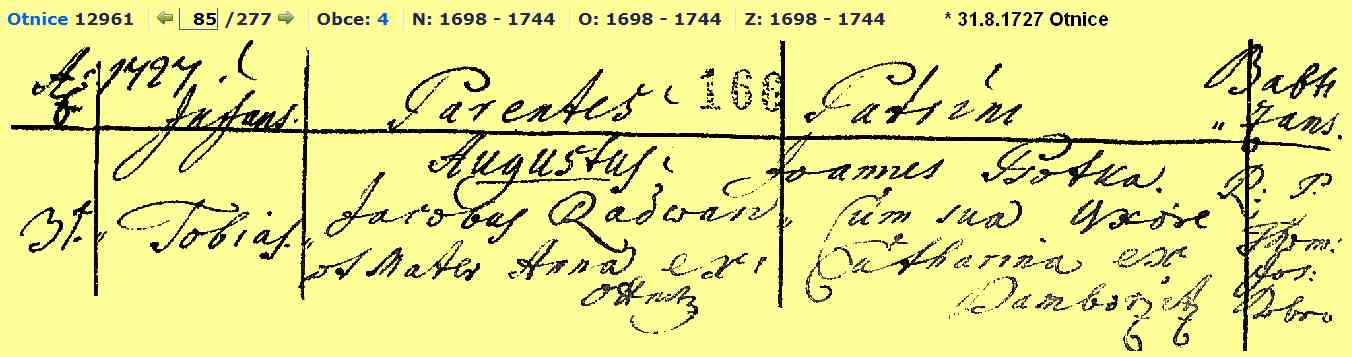 Otnice 12961 85 /277 Obce: 4 N: 1698 - 1744 O: 1698 - 1744 Z: 1698 - 1744 * 31.8.1727 Otnice
Ao 1727.
Infans. Parentes 166 Patrini Babti
zans.
Augustus.
31. Tobias. Jacobus Radwan
et Mater Anna ex
Ottnitz
Joannes Psotka.
Cum sua Uxore
Catharina ex
Damborzitz
R: P.
Thom:
Jos:
Dobro